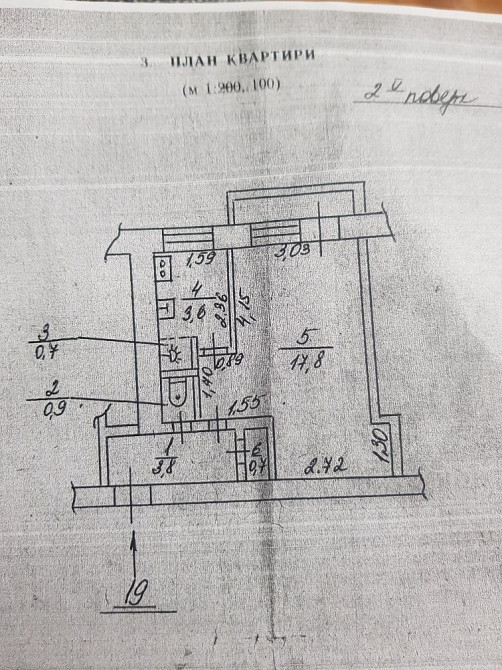 3. ПЛАН КВАРТИРИ
(м 1:200, 100)
2й поверх
1,59
3,03
4
3,6
2.36
4,15
3
0,7
5
17,8
0,89
1,40
2
0,9
1,55
1
3,8
6
0,7
2.72
1,30
19